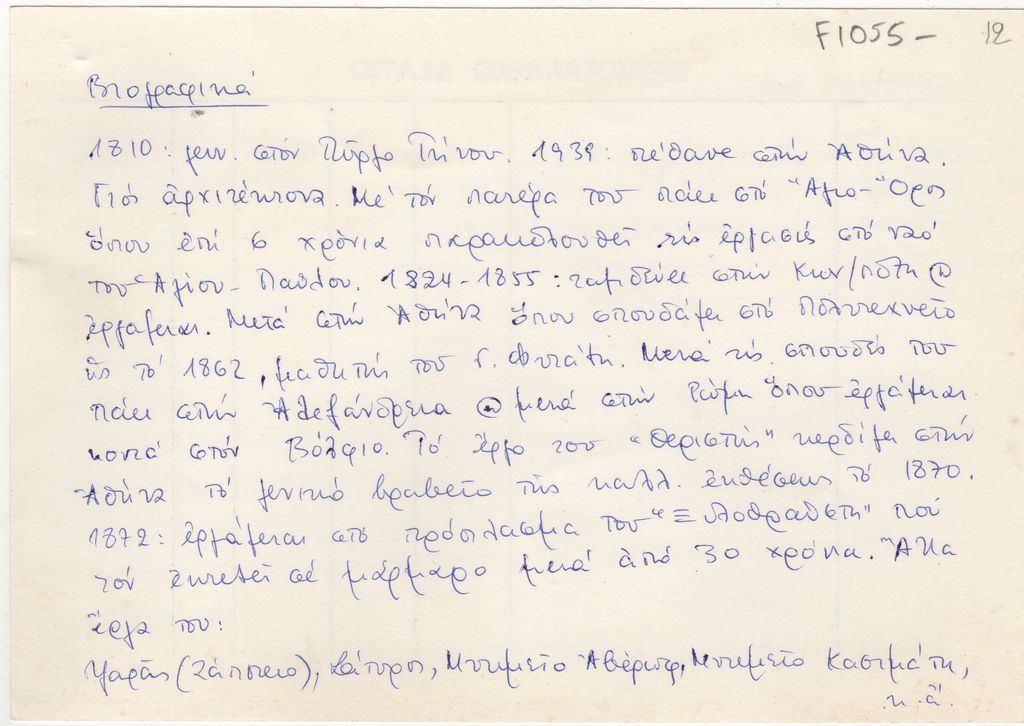 F1055 - 12
Βιογραφικά
1810: γενν. στόν Πύργο Τήνου. 1939: πέθανε στήν Ἀθήνα.
Γιός ἀρχιτέκτονα. Μέ τόν πατέρα του πάει στό Ἅγιο-Ὄρος
ὅπου ἐπί 6 χρόνια παρακολουθεῖ τίς ἐργασίες στό ναό
τοῦ Ἁγίου-Παύλου. 1824-1855: ταξιδεύει στήν Κων/πολη @
ἐργάζεται. Μετά στήν Ἀθήνα ὅπου σπουδάζει στό Πολυτεχνεῖο
ὥς τό 1862, μαθητής τοῦ Γ. Φυτάλη. Μετά τίς σπουδές του
πάει στήν Ἀλεξάνδρεια @ μετά στήν Ρώμη ὅπου ἐργάζεται
κοντά στόν Βόλφιο. Τό ἔργο του "Θεριστής" κερδίζει στήν
Ἀθήνα τό γενικό βραβεῖο τῆς καλλ. ἐκθέσεως τό 1870.
1872: ἐργάζεται στό πρόπλασμα τοῦ "Ξυλοθραύστη" πού
τόν ἐκτελεῖ σέ μάρμαρο μετά ἀπό 30 χρόνια. Ἄλλα
ἔργα του:
Ψαρᾶς (Ζάππειο), Σάτυροι, Μνημεῖο Ἀβέρωφ, Μνημεῖο Κασιμάτη,
κ.ἄ.